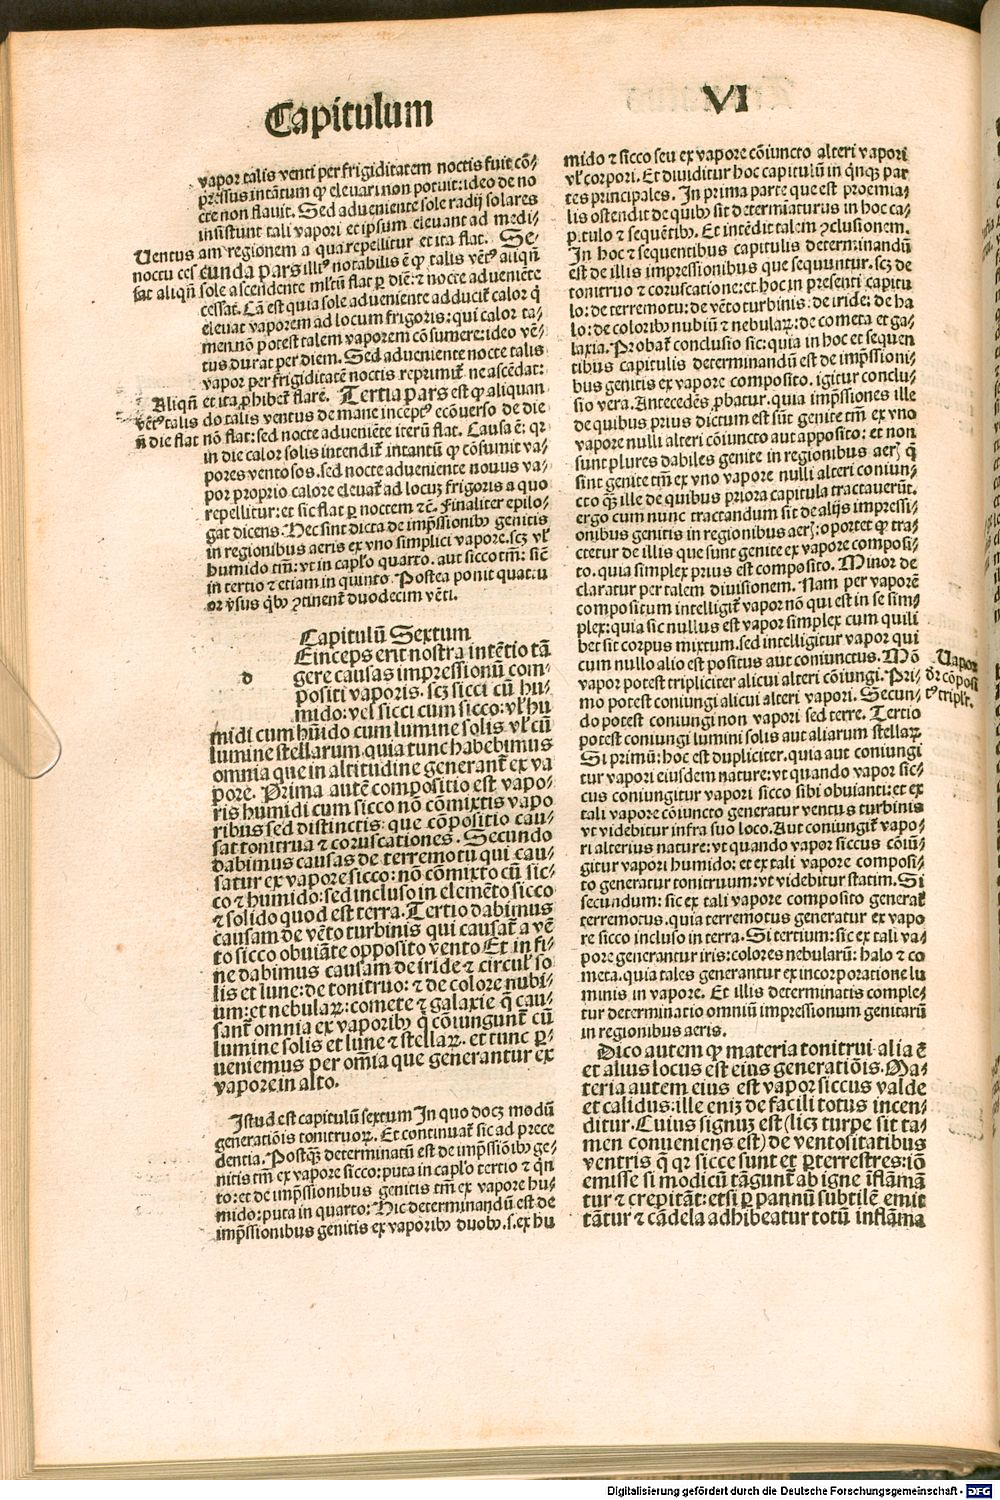 Capitulum
VI
vapor talis venti per frigiditatem noctis fuit cõ⸗
pressus intãtum ꝙ eleuari non potuit: ideo de no
cte non flauit. Sed adueniente sole radij solares
insistunt tali vapori et ipsum eleuant ad medi⸗
am regionem a qua repellitur et ita flat. Se⸗
cunda pars illiꝰ notabilis ẽ ꝙ talis vẽtꝰ aliqñ
sole ascendente ml̃tũ flat ꝑ diẽ: ⁊ nocte adueniẽte
cessat. Cã est quia sole adueniente adducit̃ calor q̃
eleuat vaporem ad locum frigoris: qui calor ta⸗
men nõ potest talem vaporem cõsumere: ideo vẽ⸗
tus durat per diem. Sed adueniente nocte talis
vapor per frigiditatẽ noctis reprimit̃ ne ascẽdat:
et ita ꝓhibet̃ flare. Tertia pars est ꝙ aliquan
do talis ventus de mane inceptꝰ ecõuerso de die
nõ flat: sed nocte adueniẽte iterũ flat. Causa ẽ: qꝛ
in die calor solis intendit̃ intantũ ꝙ cõsumit va⸗
pores ventosos. sed nocte adueniente nouus va⸗
por proprio calore eleuat̃ ad locuꝫ frigoris a quo
repellitur: et sic flat ꝑ noctem ⁊c̃. Finaliter epilo⸗
gat dicens. Hec sint dicta de imp̃ssionibꝰ genitis
in regionibus aeris ex vno simplici vapore. scꝫ vl̃
humido tm̃: vt in cap̃lo quarto. aut sicco tm̃: sic̃
in tertio ⁊ etiam in quinto. Postea ponit quatu
or v̾sus q̃bꝰ ꝯtinent̃ duodecim vẽti.
Uentus
noctu ces
sat aliqñ
Aliqñ
vẽtꝰ talis
ñ die flat
Capitulũ Sextum
d
Einceps erit nostra intẽtio tã
gere causas impressionũ com⸗
positi vaporis. scꝫ sicci cũ hu⸗
mido: vel sicci cum sicco: vl̃ hu
midi cum hũido cum lumine solis vl̃ cũ
lumine stellarum quia tunc habebimus
omnia que in altitudine generant̃ ex va
pore. Prima autẽ compositio est vapo⸗
ris humidi cum sicco nõ cõmixtis vapo
ribus sed distinctis: que cõpositio cau⸗
sat tonitrua ⁊ coruscationes. Secundo
dabimus causas de terremotu qui cau⸗
satur ex vapore sicco: nõ cõmixto cũ sic⸗
co ⁊ humido: sed incluso in elemẽto sicco
⁊ solido quod est terra. Tertio dabimus
causam de vẽto turbinis qui causat̃ a vẽ
to sicco obuiãte opposito vento Et in fi⸗
ne dabimus causam de iride ⁊ circul̃ so
lis et lune: de tonitruo: ⁊ de colore nubi⸗
um: et nebulaꝝ: comete ⁊ galaxie q̃ cau⸗
sant̃ omnia ex vaporibꝰ q̃ cõiungunt̃ cũ
lumine solis et lune ⁊ stellaꝝ. et tunc ꝑ⸗
ueniemus per om̃ia que generantur ex
vapore in alto.
Istud est capitulũ sextum In quo docꝫ modũ
generatiõis tonitruoꝝ. Et continuat̃ sic ad prece
dentia. Postq̃ꝫ determinatũ est de imp̃ssiõibꝰ ge⸗
nitis tm̃ ex vapore sicco: puta in cap̃lo tertio ⁊ q̃n
to: et de imp̃ssionibus genitis tm̃ ex vapore hu⸗
mido: puta in quarto: Hic determinandũ est de
imp̃ssionibus genitis ex vaporibꝰ duobꝰ. s. ex hu
mido ⁊ sicco seu ex vapore cõiuncto alteri vapori
vl̃ corpori. Et diuiditur hoc capitulũ in q̃nqꝫ par
tes principales. In prima parte que est proemia⸗
lis ostendit de quibꝰ sit determiãturus in hoc ca⸗
pitulo ⁊ sequẽtibꝰ. Et intẽdit talem ꝯclusionem.
In hoc ⁊ sequentibus capitulis determinandũ
est de illis impressionibus que sequuntur. scꝫ de
tonitruo ⁊ coruscatione: et hoc in presenti capitu
lo: de terremotu: de vẽto turbinis: de iride: de ha
lo: de coloribꝰ nubiũ ⁊ nebulaꝝ: de cometa et ga⸗
laxia. Probat̃ conclusio sic: quia in hoc et sequen
tibus capitulis determinandũ est de imp̃ssioni⸗
bus genitis ex vapore composito. igitur conclu⸗
sio vera. Antecedẽs ꝓbatur. quia imp̃ssiones ille
de quibus prius dictum est sũt genite tm̃ ex vno
vapore nulli alteri cõiuncto aut apposito: et non
sunt plures dabiles genite in regionibus aerꝭ q̃
sint genite tm̃ ex vno vapore nulli alteri coniun⸗
cto qꝫ̃ ille de quibus priora capitula tractauerũt.
ergo cum nunc tractandum sit de alijs impressi⸗
onibus genitis in regionibus aerꝭ: oportet ꝙ tra⸗
ctetur de illis que sunt genite ex vapore composi⸗
to. quia simplex prius est composito. Minor de
claratur per talem diuisionem. Nam per vaporẽ
compositum intelligit̃ vapor nõ qui est in se sim⸗
plex: quia sic nullus est vapor simplex cum quili
bet sit corpus mixtum. sed intelligitur vapor qui
cum nullo alio est positus aut coniunctus. Mõ
vapor potest tripliciter alicui alteri cõiungi. Pri⸗
mo potest coniungi alicui alteri vapori. Secun⸗
do potest coniungi non vapori sed terre. Tertio
potest coniungi lumini solis aut aliarum stellaꝝ
Si primũ: hoc est dupliciter. quia aut coniungi
tur vapori eiusdem nature: vt quando vapor sic⸗
cus coniungitur vapori sicco sibi obuianti: et ex
tali vapore cõiuncto generatur ventus turbinis
vt videbitur infra suo loco. Aut coniungit̃ vapo⸗
ri alterius nature: vt quando vapor siccus cõiũ⸗
gitur vapori humido: et ex tali vapore composi⸗
to generatur tonitruum: vt videbitur statim. Si
secundum: sic ex tali vapore composito general̃
terremotus. quia terremotus generatur ex vapo
re sicco incluso in terra. Si tertium: sic ex tali va⸗
pore generantur iris: colores nebularũ: halo ⁊ co
meta. quia tales generantur ex incorporatione lu
minis in vapore. Et illis determinatis comple⸗
tur determinatio omniũ impressionum genitarũ
in regionibus aeris.
Uapor
dr̃ cõposi
tꝰ triplr̃.
Dico autem ꝙ materia tonitrui alia ẽ
et alius locus est eius generatiõis. Ma⸗
teria autem eius est vapor siccus valde
et calidus: ille eniꝫ de facili totus incen⸗
ditur. Cuius signuꝫ est (licꝫ turpe sit ta⸗
men conueniens est) de ventositatibus
ventris q̃ qꝛ sicce sunt et ꝑterrestres: iõ
emisse si modicũ tãgunt̃ ab igne ĩflãmã
tur ⁊ crepitãt: etsi ꝑ pannũ subtilẽ emit
tãtur ⁊ cãdela adhibeatur totũ inflãma
Digitalisierung gefördert durch die Deutsche Forschungsgemeinschaft - DFG